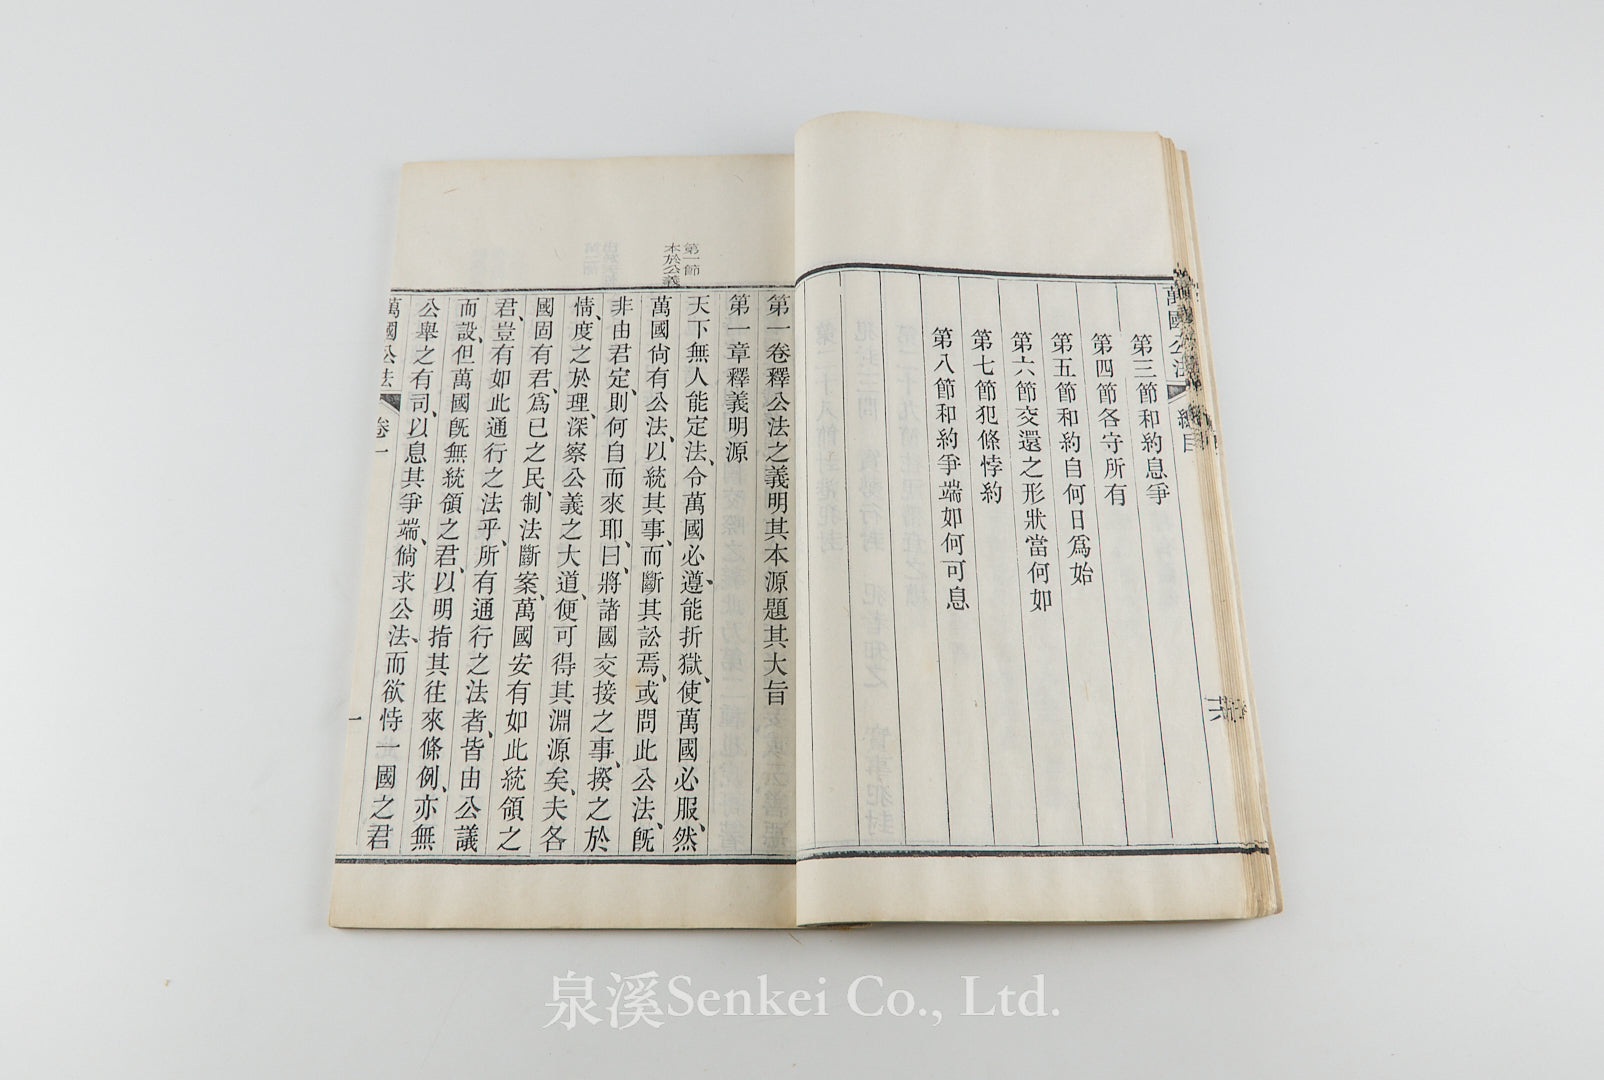 萬國公法
總目
第三節和約息爭
第四節各守所有
第五節和約自何日爲始
第六節交還之形狀當何如
第七節犯條悖約
第八節和約爭端如何可息
第一卷釋公法之義明其本源題其大旨
第一章釋義明源
第一節
本於公義
天下無人能定法、令萬國必遵、能折獄、使萬國必服、然
萬國尙有公法、以統其事、而斷其訟焉、或問此公法、旣
非由君定、則何自而來耶、曰、將諸國交接之事、揆之於
情、度之於理、深察公義之大道、便可得其淵源矣、夫各
國固有君、爲已之民、制法斷案、萬國安有如此統領之
君、豈有如此通行之法乎、所有通行之法者、皆由公議
而設、但萬國旣無統領之君、以明指其往來條例、亦無
公舉之有司、以息其爭端、倘求公法、而欲恃一國之君
萬國公法
卷一
一
泉溪Senkei Co., Ltd.